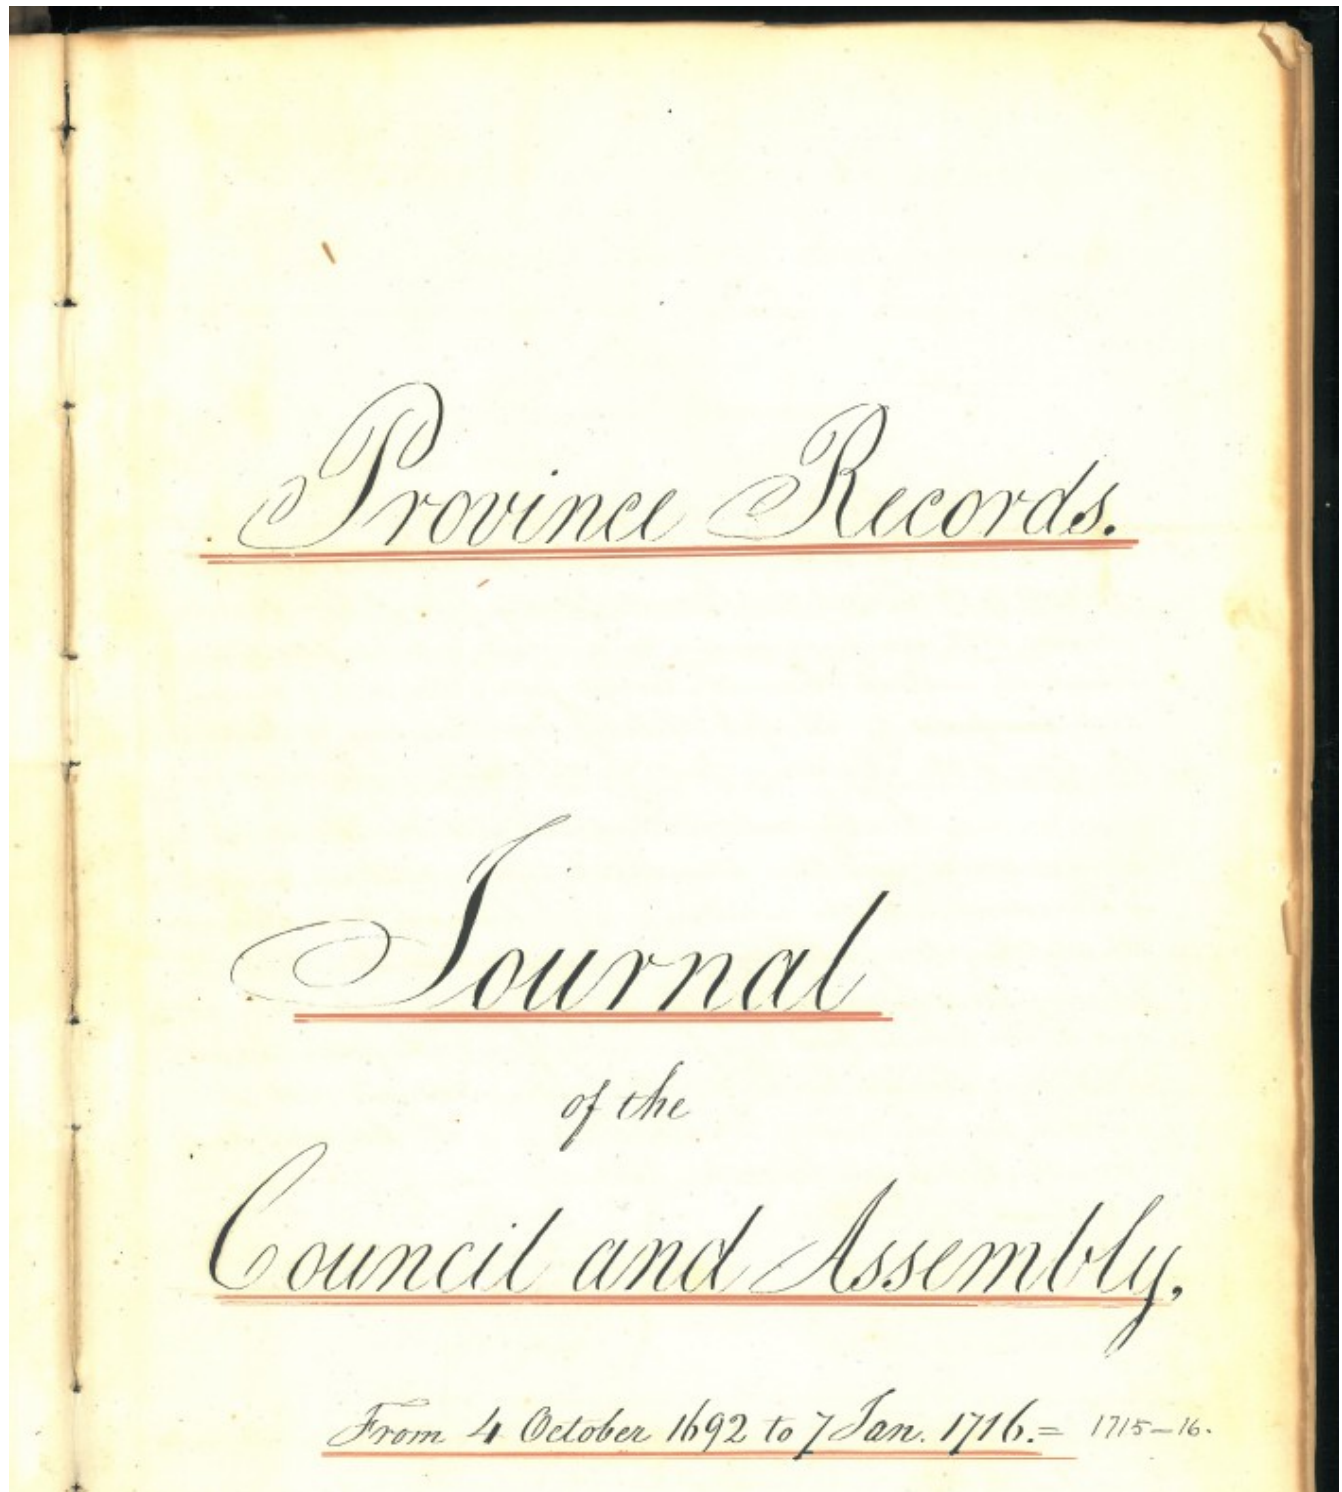 Province Records.
Journal
of the
Council and Assembly,
From 4 October 1692 to 7 Jan. 1716.= 1715-16.